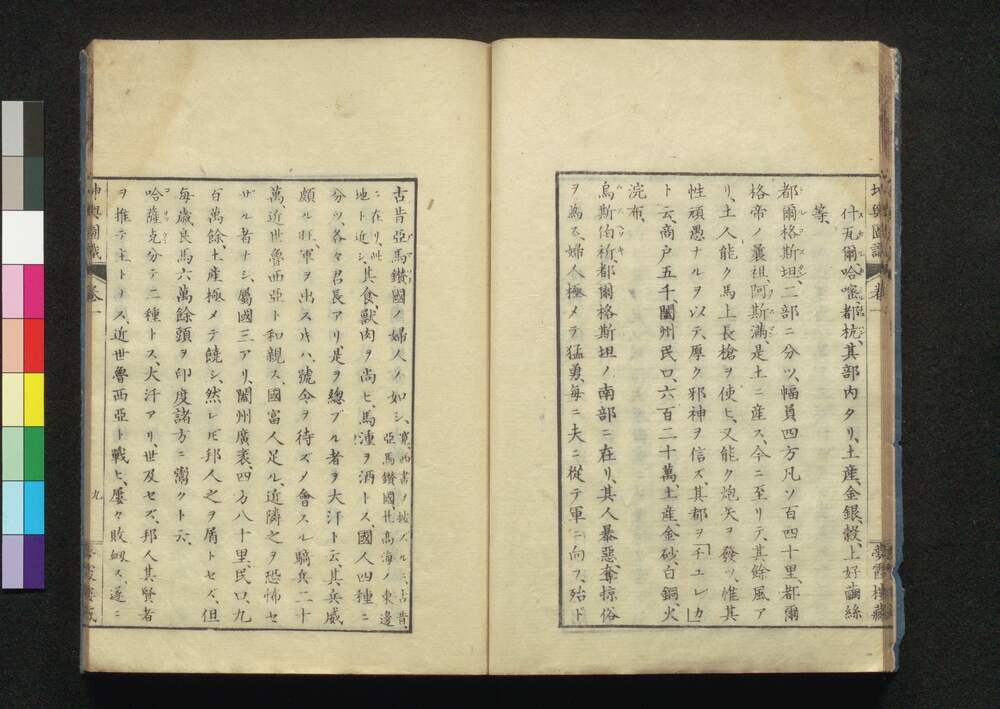 坤輿圖識 卷一 夢霞樓藏
什瓦爾哈嘧都杭、其部內タリ、土産、金銀、穀、上好繭絲
等、
都爾格斯坦、二部ニ分ツ、幅員四方凡ソ百四十里、都爾
格帝ノ曩祖阿斯滿是土ニ産ス、今ニ至リテ、其餘風ア
リ、土人能ク馬上長槍ヲ使ヒ、又能ク炮矢ヲ發ツ、惟其
性頑愚ナルヲ以テ、厚ク邪神ヲ信ズ、其都ヲ「チユレカ」
ト云、商戸五千、闔州民口、六百二十萬、土産、金砂、白銅、火
浣布、
烏斯伯祈都爾格斯坦ノ南部ニ在リ、其人暴惡、奪掠俗
ヲ為ス、婦人極メテ猛勇、毎ニ夫ニ從テ軍ニ向フ、殆ド
古昔亞馬鑽國ノ婦人ノ如シ、西書ノ古昔、
亞馬鑽國北高海ノ東邊
ニ在リ、此
地ト近シ、其食、獸肉ヲ尚ヒ馬湩ヲ酒トス、國人四種ニ
分ツ、各々君長アリ、是ヲ總ブル者ヲ大汗ト云、其兵威
頗ル旺、軍ヲ出ス片ハ、號令ヲ待ズメ會スル騎兵二十
萬、近世魯西亞ト和親ス、國富人足ル、近隣之ヲ恐怖セ
ザル者ナシ、屬國三アリ、闔州廣袤、四方八十里、民口、九
百萬餘、土産極メテ饒シ、然レ𪜈邦人之ヲ屑トセズ、但
毎歲良馬六萬餘頭ヲ印度諸方ニ鬻クト云、
哈薩克分テ二種トス、大汗アリ、世及セズ、邦人其賢者
ヲ推テ主トメス、近世魯西亞ト戰ヒ、屢々敗衂ス、遂ニ
坤輿圖識 卷一 九 夢霞樓藏